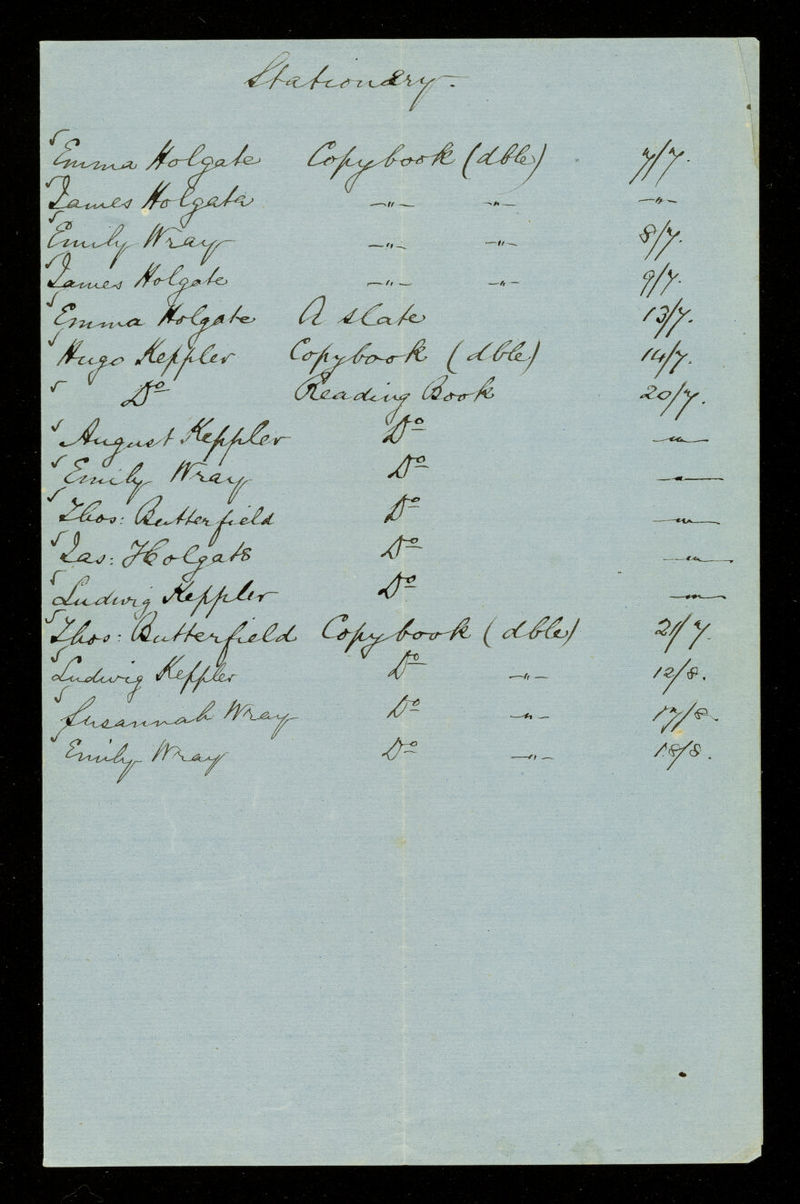 Stationery.
Emma Holgate Copybook (dble) 7/7.
James Holgate —"— —"— —"—
Emily Wray —"— —"— 8/7.
James Holgate —"— —"— 9/7.
Emma Holgate A slate 13/7.
Hugo Keppler Copybook (dble) 14/7.
Do Reading Book 20/7.
August Keppler Do —"—
Emily Wray Do —"—
Thos: Butterfield Do —"—
Jas: Holgate Do —"—
Ludwig Keppler Do —"—
Thos: Butterfield Copybook (dble) 21/7.
Ludwig Keppler Do —"— 12/8.
Susannah Wray Do —"— 17/8.
Emily Wray Do —"— 18/8.